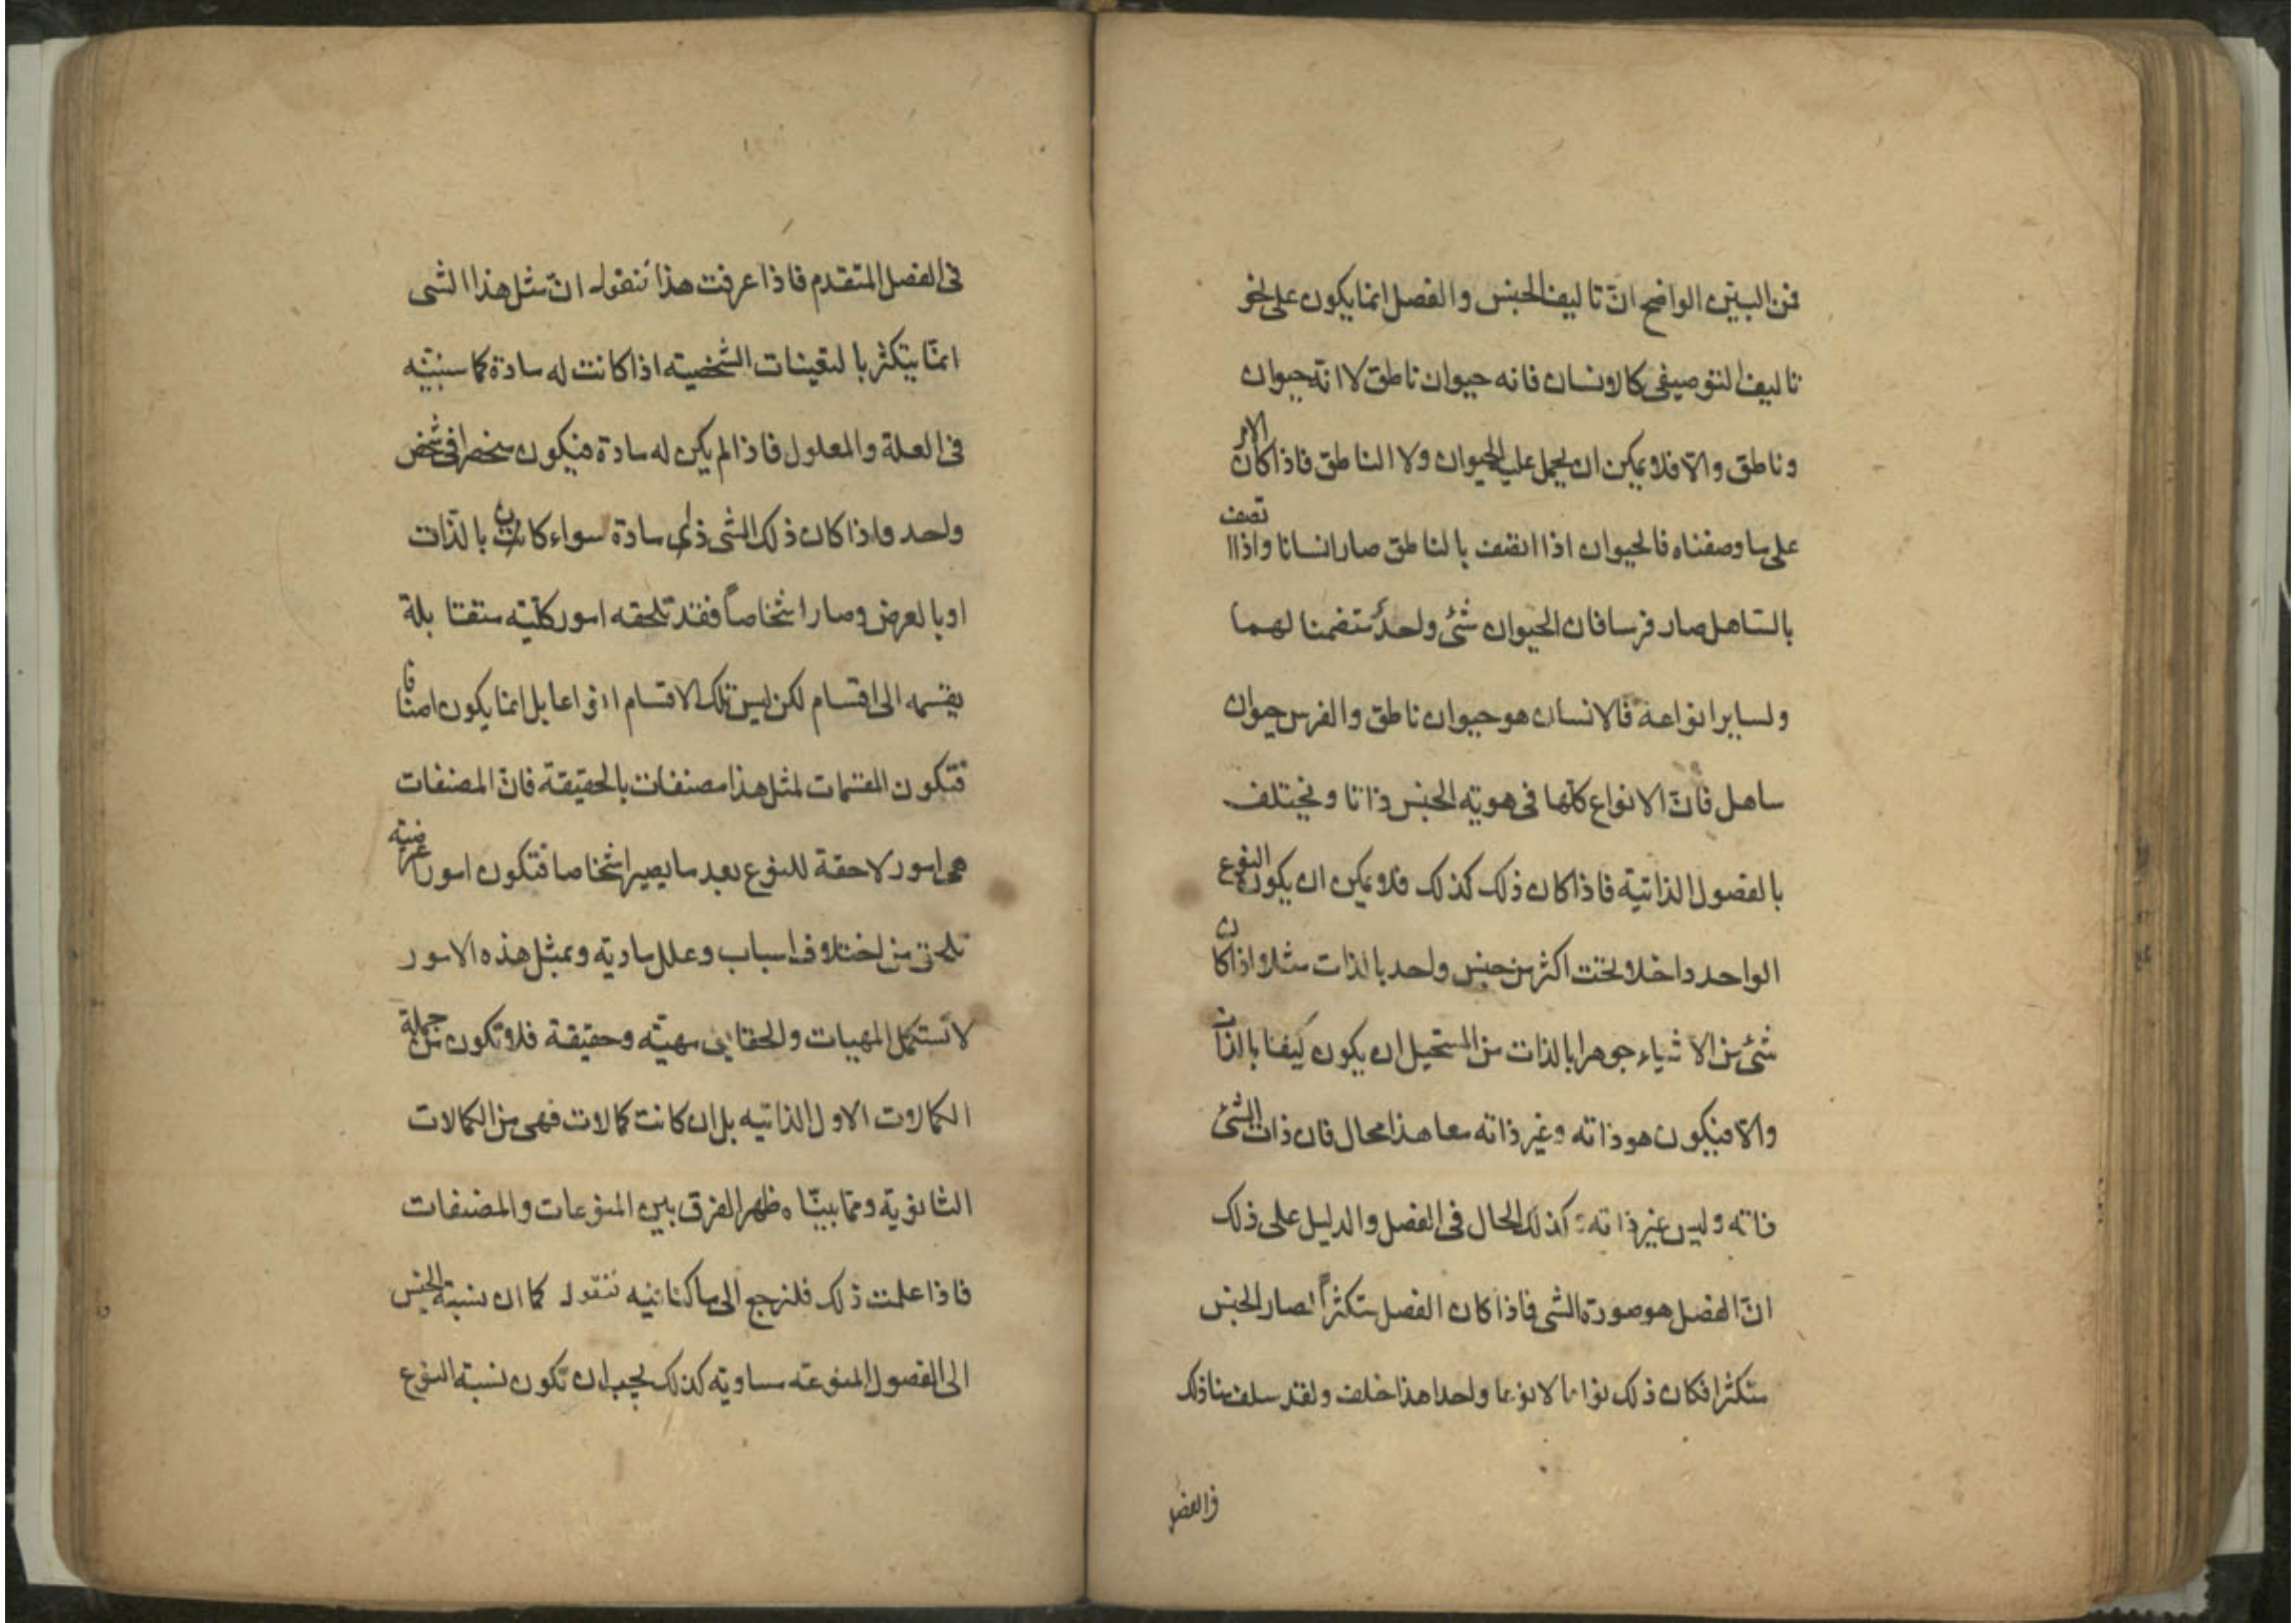 فمن البيّن الواضح انّ تاليف الجنس والفصل انما يكون على نحو
تاليف التوصيفى كالانسان فانه حيوان ناطق لا انه حيوان
وناطق والّا فلا يمكن ان يحمل عليه الحيوان ولا الناطق فاذا كان الامر
على ما وصفناه فالحيوان اذا اتصف بالناطق صار انسانا واذا اتصف
بالصاهل صار فرسا فان الحيوان شئ واحد متضمنا لهما
ولساير انواعه فالانسان هو حيوان ناطق والفرس حيوان
صاهل فانّ الانواع كلّها فى هويّة الجنس ذاتا ويختلف
بالفصول الذاتية فاذا كان ذلك كذلك فلا يمكن ان يكون النوع
الواحد داخلا تحت اكثر من جنس واحد بالذات مثلا اذا كان
شئ من الاشياء جوهرا بالذات من المستحيل ان يكون كيفا بالذات
والّا فيكون هو ذاته وغير ذاته معا هذا محال فان ذات الشئ
ذاته وليس غير ذاته وكذلك الحال فى الفصل والدليل على ذلك
انّ الفصل هو صورة الشى فاذا كان الفصل متكثراً لصار الجنس
متكثرا فكان ذلك نواعا لا نوعا واحدا هذا خلف ولقد سلف منا ذلك
فى الفصل
فى الفصل المتقدم فاذا عرفت هذا فنقول انّ مثل هذا الشى
انمّا يتكثر بالتعينات الشخصية اذا كانت له مادة كما سنبيّنه
فى العلة والمعلول فاذا لم يكن له مادة فيكون منحصرا فى شخص
واحد واذا كان ذلك الشى ذى مادة سواء كانت بالذات
او بالعرض وصار اشخاصاً فقد تلحقه امور كليّة متقابلة
يقسمه الى اقسام لكن ليس تلك الاقسام انواعا بل انما يكون اصنافا
فتكون المقسمات لمثل هذا مصنفات بالحقيقة فانّ المصنفات
هى امور لاحقة للنوع بعد ما يصير اشخاصا فتكون امور عرضية
تلحق من اختلاف اسباب وعلل مادية وبمثل هذه الامور
لا تستكمل المهيات والحقايق مهيّة وحقيقة فلا تكون من جملة
الكمالات الاول الذاتيه بل ان كانت كمالات فهى من الكمالات
الثانوية ومما بينّاه ظهر الفرق بين المنوعات والمصنفات
فاذا علمت ذلك فلنرجع الى ما كنا فيه فنقول كما ان نسبة الجنس
الى الفصول المنوعة مساوية كذلك يجب ان تكون نسبة النوع